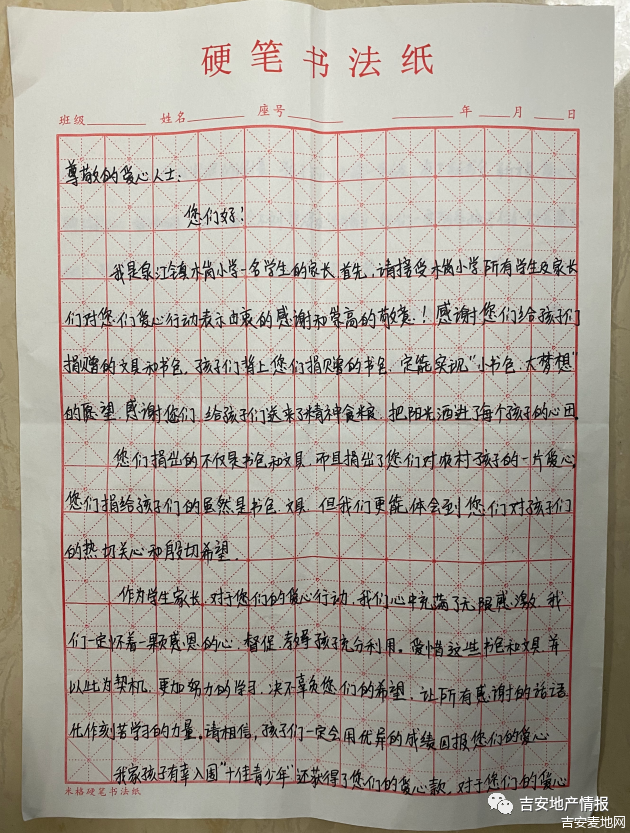 硬笔书法纸
班级 姓名 座号 年 月 日
尊敬的爱心人士：
您们好！
我是泉江镇水岗小学一名学生的家长，首先，请接受水岗小学所有学生及家长
们对您们爱心行动表示由衷的感谢和崇高的敬意！感谢您们给孩子们
捐赠的文具和书包，孩子们背上您们捐赠的书包，定能实现“小书包，大梦想”
的愿望，感谢您们，给孩子们送来了精神食粮，把阳光洒进了每个孩子的心田。
您们捐出的不仅是书包和文具，而且捐出了您们对农村孩子的一片爱心，
您们捐给孩子们的虽然是书包，文具，但我们更能体会到您们对孩子们
的热切关心和殷切希望。
作为学生家长，对于您们的爱心行动，我们心中充满了无限感激，我
们一定怀着一颗感恩的心，督促，教导孩子充分利用。爱惜这些书包和文具，并
以此为契机，更加努力的学习，决不辜负您们的希望，让所有感谢的话语
化作刻苦学习的力量。请相信，孩子们一定会用优异的成绩回报您们的爱心
我家孩子有幸入围“十佳青少年”还获得了您们的爱心款，对于您们的爱心
米格硬笔书法纸
吉安地产情报
吉安麦地网